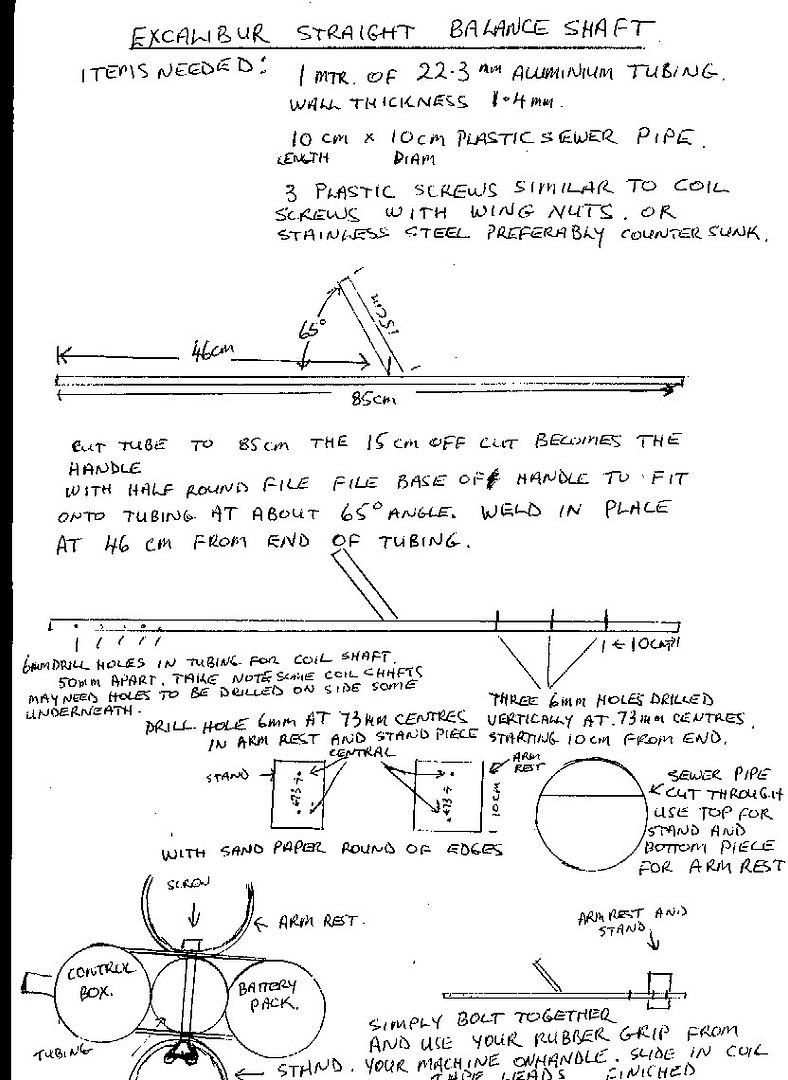 EXCALIBUR STRAIGHT BALANCE SHAFT
ITEMS NEEDED: 1 MTR. OF 22.3 mm ALUMINIUM TUBING.
WALL THICKNESS 1.4mm.
10 cm x 10cm PLASTIC SEWER PIPE.
LENGTH DIAM
3 PLASTIC SCREWS SIMILAR TO COIL
SCREWS WITH WING NUTS. OR
STAINLESS STEEL PREFERABLY COUNTER SUNK.
65° 15cm
46cm
85cm
CUT TUBE TO 85cm THE 15cm OFF CUT BECOMES THE
HANDLE
WITH HALF ROUND FILE FILE BASE OF HANDLE TO FIT
ONTO TUBING AT ABOUT 65° ANGLE. WELD IN PLACE
AT 46 CM FROM END OF TUBING.
10cm
6mm DRILL HOLES IN TUBING FOR COIL SHAFT.
50mm APART. TAKE NOTE SOME COIL SHAFTS
MAY NEED HOLES TO BE DRILLED ON SIDE SOME
UNDERNEATH.
THREE 6mm HOLES DRILLED
VERTICALLY AT 73mm CENTRES,
STARTING 10cm FROM END.
DRILL HOLE 6mm AT 73MM CENTRES
IN ARM REST AND STAND PIECE
CENTRAL
STAND
73
73
10cm
ARM
REST
SEWER PIPE
CUT THROUGH
USE TOP FOR
STAND AND
BOTTOM PIECE
FOR ARM REST
WITH SAND PAPER ROUND OF EDGES
SCREW
ARM REST.
CONTROL
BOX.
BATTERY
PACK.
TUBING
STAND.
ARM REST AND
STAND
SIMPLY BOLT TOGETHER
AND USE YOUR RUBBER GRIP FROM
YOUR MACHINE ON HANDLE. SLIDE IN COIL
TAPE LEADS FINICHED